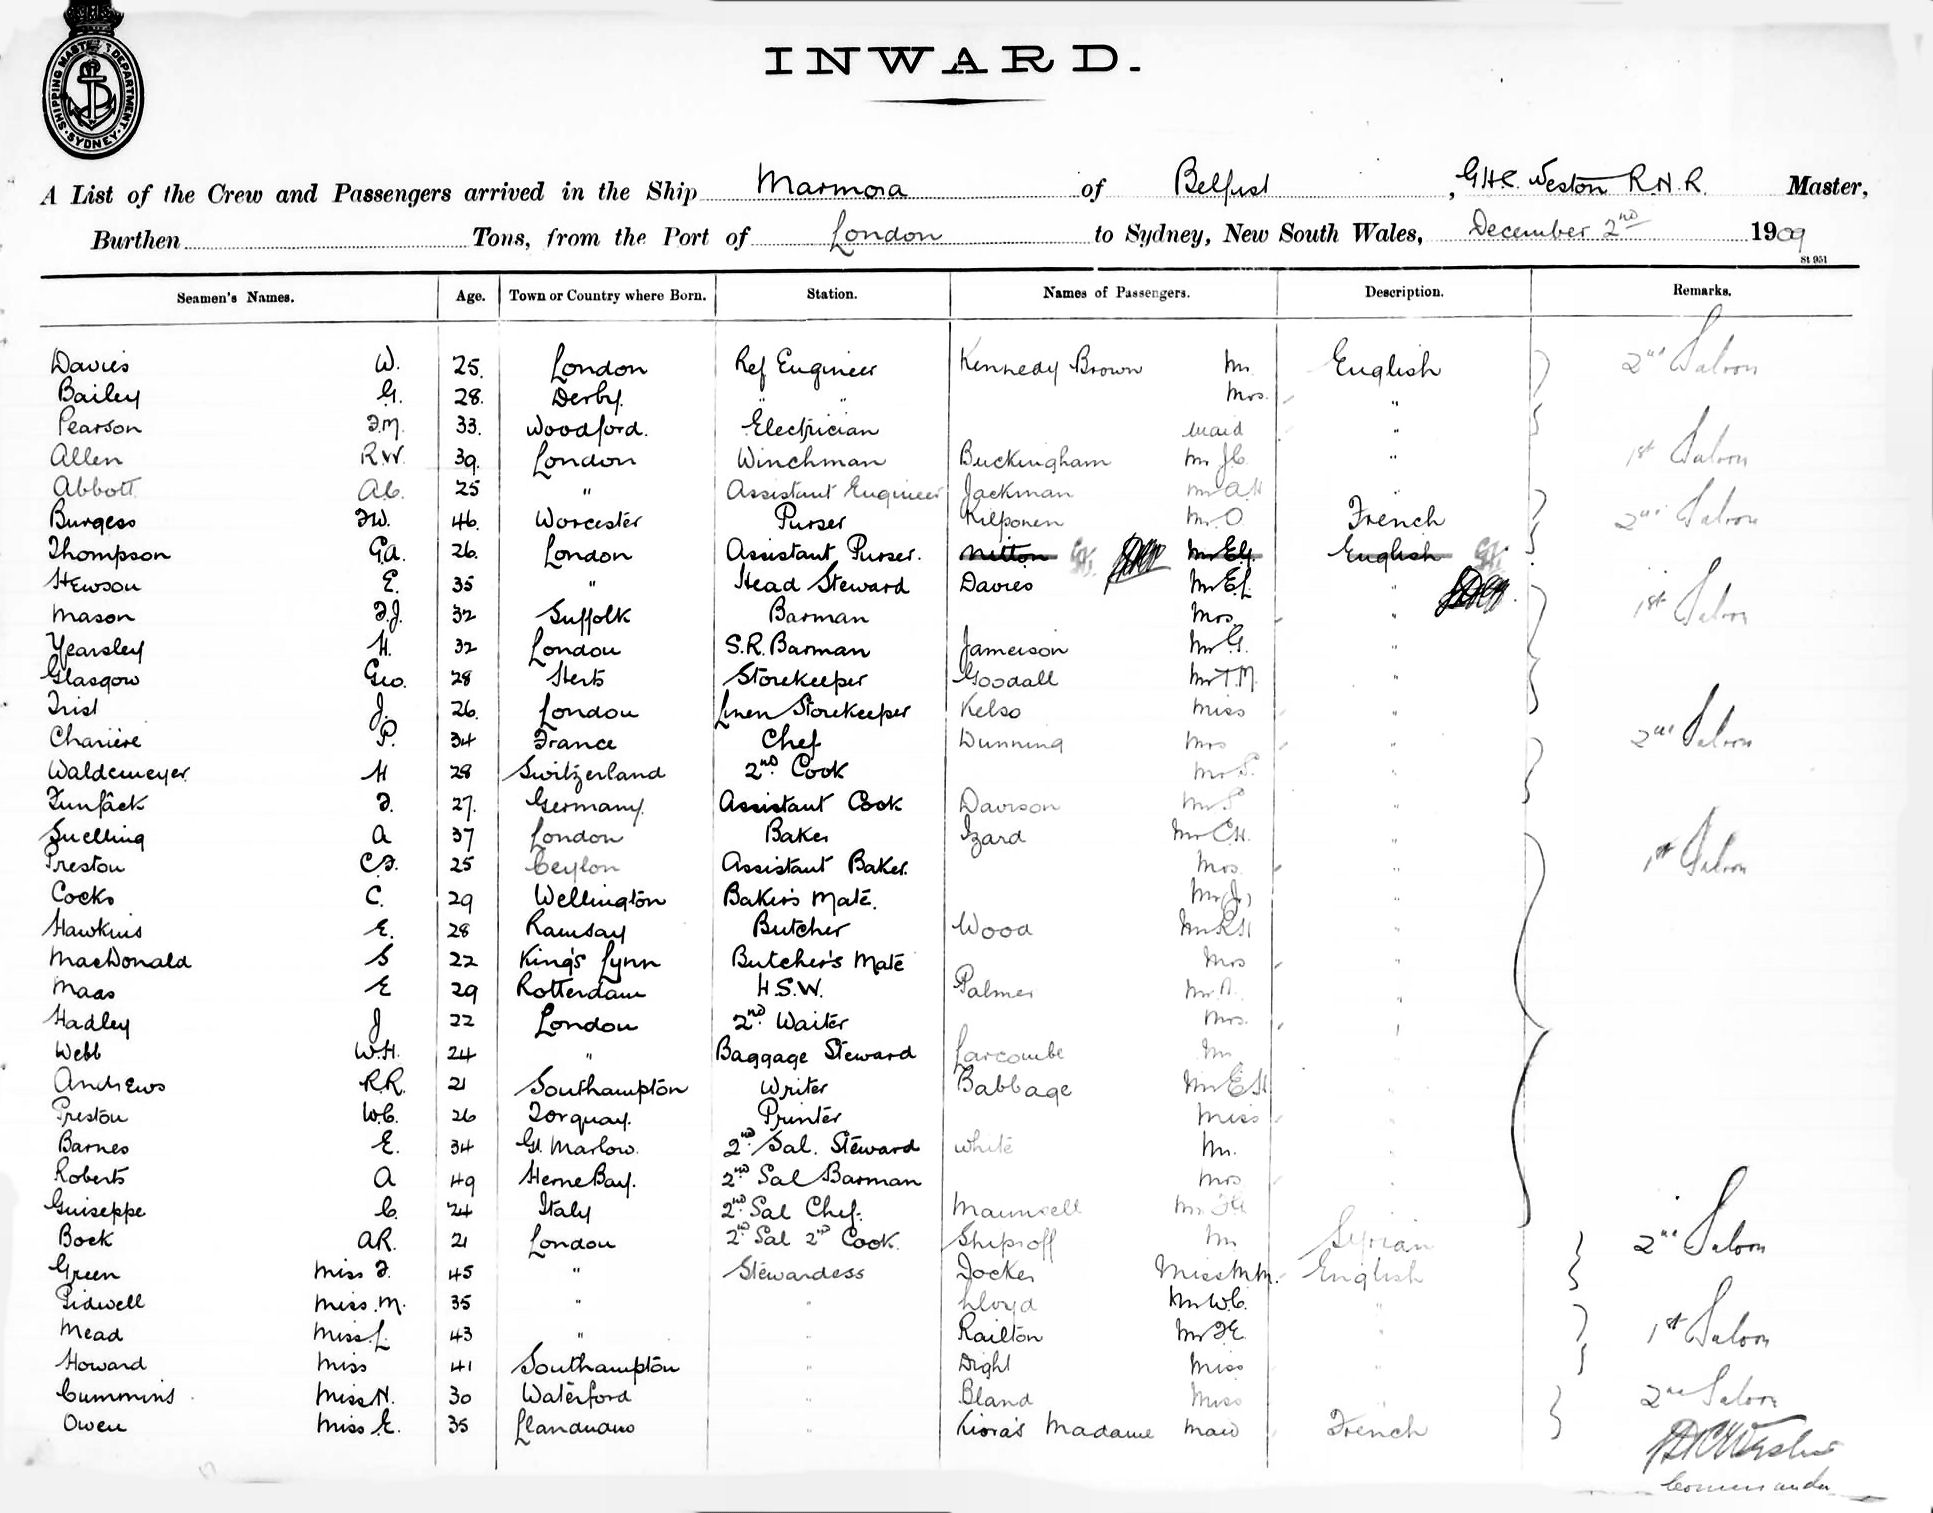 SHIPPING MASTER'S DEPARTMENT · SYDNEY ·
INWARD.
A List of the Crew and Passengers arrived in the Ship Marmora of Belfast, G.H.C. Weston R.N.R. Master,
Burthen Tons, from the Port of London to Sydney, New South Wales, December 2nd 1909
St 951
Seamen's Names. Age. Town or Country where Born. Station. Names of Passengers. Description. Remarks.
Davies W. 25. London Ref Engineer Kennedy Brown Mr English 2nd Saloon
Bailey G. 28. Derby. " " Mrs. "
Pearson F.M. 33. Woodford. Electrician Maid "
Allen R.W. 39. London Winchman Buckingham Mr J.C. " 1st Saloon
Abbott A.C. 25 " Assistant Engineer Jackman Mr A.H "
Burgess F.W. 46. Worcester Purser Kilponen Mr O French 2nd Saloon
Thompson G.A. 26. London Assistant Purser. Mitton Mr E.G. English
Hewson E. 35 " Head Steward Davies Mr E.L. "
Mason F.J. 32 Suffolk Barman Mrs. " 1st Saloon
Yearsley H. 32 London S.R. Barman Jamerson Mr G. "
Glasgow Geo. 28 Herts Storekeeper Goodall Mr T.M. "
Trist J. 26. London Linen Storekeeper Kelso Miss "
Charière P. 34 France Chef Dunning Mrs " 2nd Saloon
Waldemeyer H 28 Switzerland 2nd Cook Mr S. "
Funfâck F. 27. Germany. Assistant Cook Davison Mr S "
Snelling A 37 London Baker Izard Mr C.H. "
Preston C.F. 25 Ceylon Assistant Baker. Mrs. " 1st Saloon
Cocks C. 29 Wellington Baker's Mate. Mr Jr "
Hawkins E. 28 Ramsay Butcher Wood Mr R.H "
MacDonald S 22 King's Lynn Butcher's Mate Mrs "
Maas E 29 Rotterdam H.S.W. Palmer Mr A. "
Hadley J 22 London 2nd Waiter Mrs. "
Webb W.H. 24 " Baggage Steward Larcombe Mr "
Andrews R.R. 21 Southampton Writer Babbage Mr E.H. "
Preston W.C. 26 Torquay. Printer Miss "
Barnes E. 34 Gt. Marlow. 2nd Sal. Steward White Mr. "
Roberts A 49 Herne Bay. 2nd Sal Barman Mrs "
Guiseppe C. 24 Italy 2nd Sal Chef. Maunsell Mr
Bock A.R. 21 London 2nd Sal 2nd Cook. Shiproff Mr Syrian 2nd Saloon
Green Miss F. 45 " Stewardess Docker Miss M.M. English
Pidwell Miss. M. 35 " " Lloyd Mr W.C. "
Mead Miss. L. 43 " " Railton Mr F.E. " 1st Saloon
Howard Miss 41 Southampton " Dight Miss "
Cummins Miss N. 30 Waterford " Bland Miss 2nd Saloon
Owen Miss E. 35 Llandudno " Madame Maid French
Commander